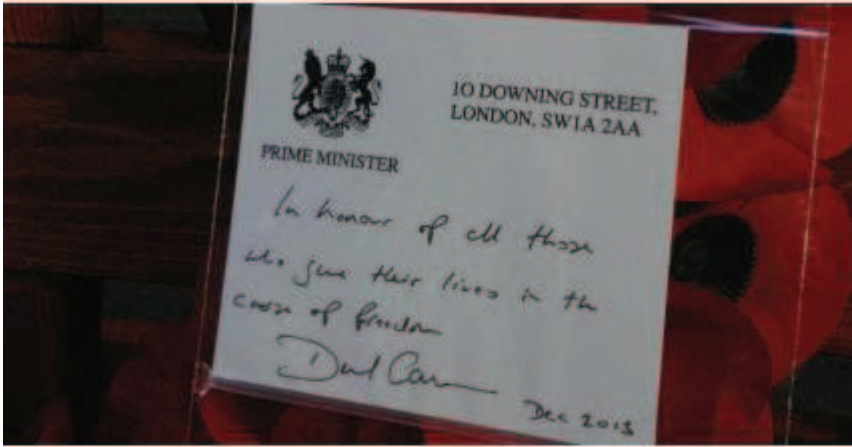 10 DOWNING STREET,
LONDON, SW1A 2AA
PRIME MINISTER
In honour of all those
who gave their lives in the
cause of freedom
David Cameron
Dec 2013